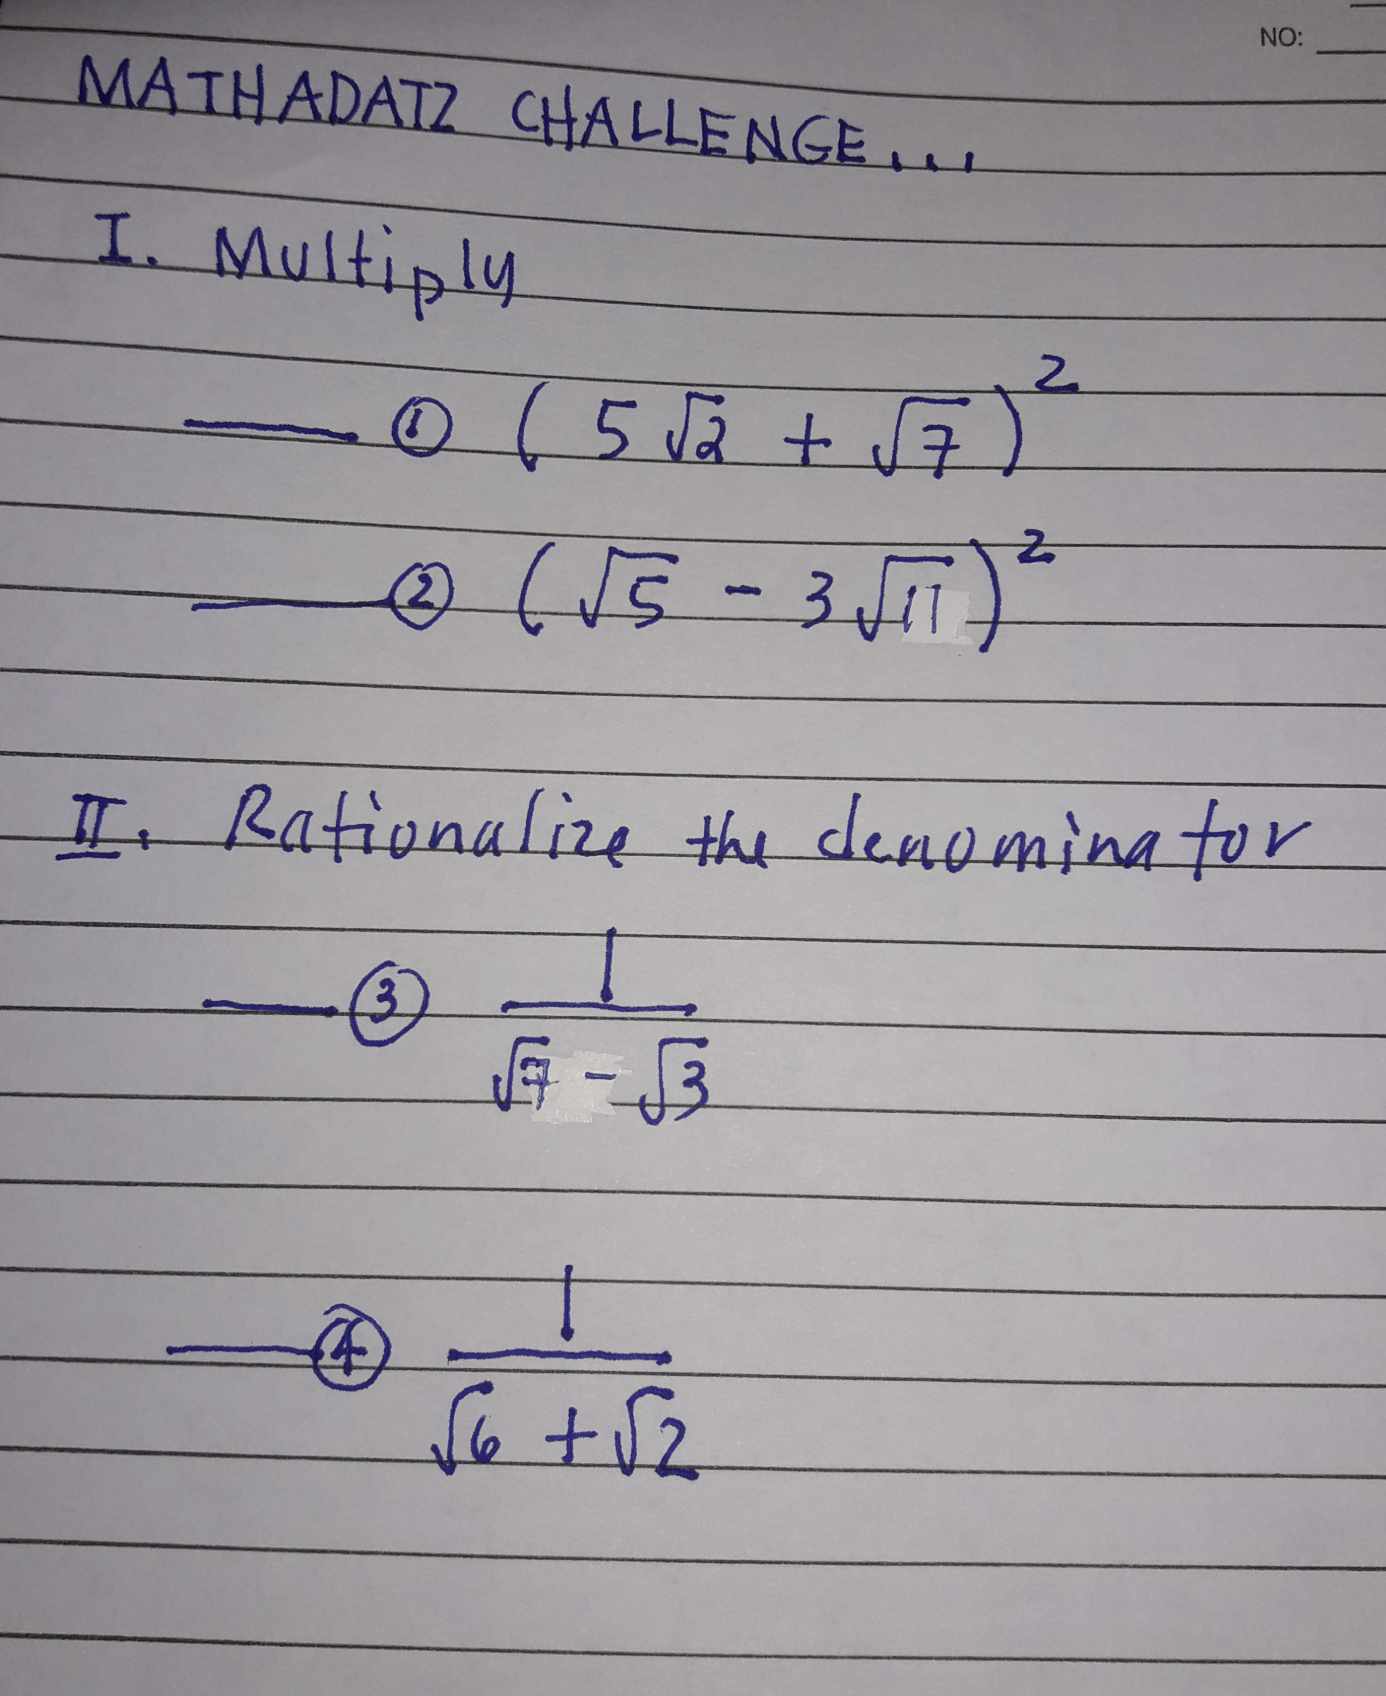 NO:
MATHADATZ CHALLENGE...
I. Multiply
① (5√2 + √7)²
② (√5 - 3√11)²
II. Rationalize the denominator
③ 1
√7 - √3
④ 1
√6 + √2